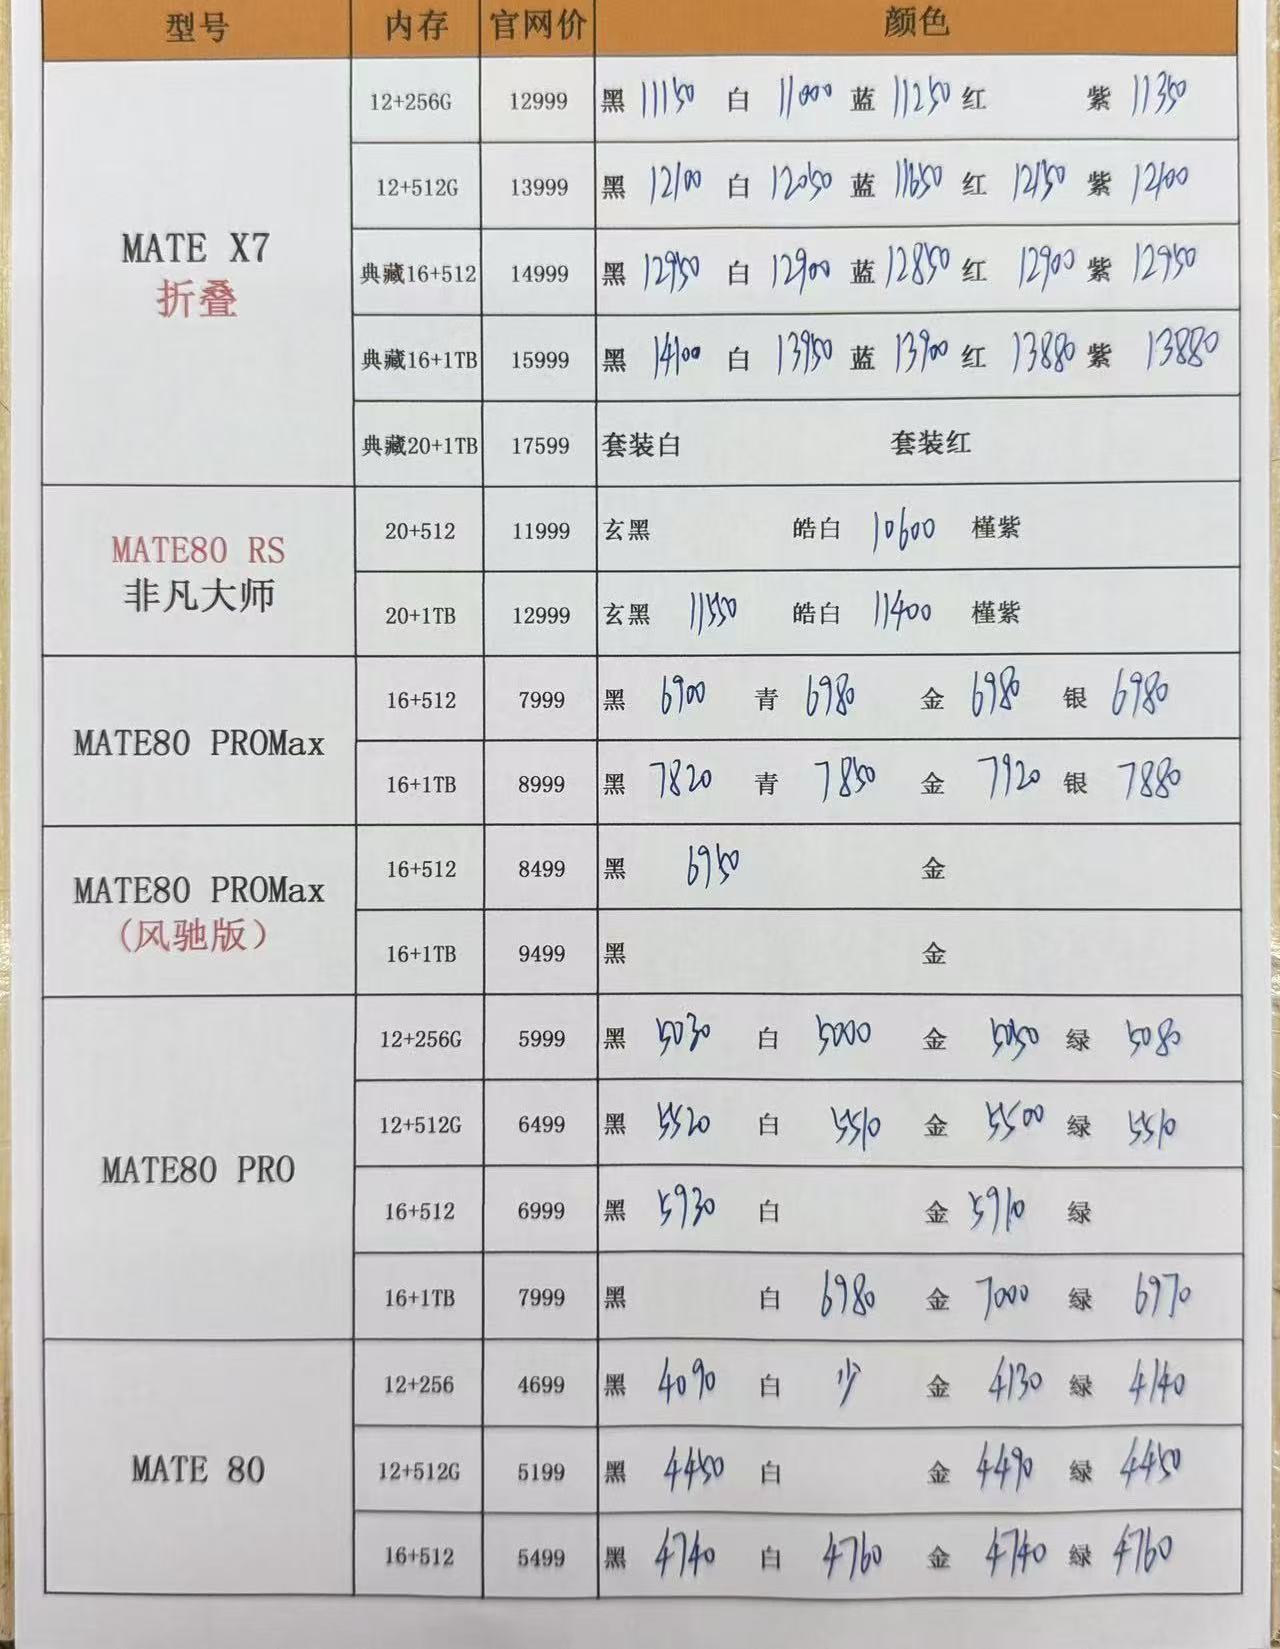 型号 内存 官网价 颜色
MATE X7
折叠
12+256G 12999 黑 11150 白 11000 蓝 11250 红 紫 11350
12+512G 13999 黑 12100 白 12050 蓝 11650 红 12150 紫 12100
典藏16+512 14999 黑 12950 白 12900 蓝 12850 红 12900 紫 12950
典藏16+1TB 15999 黑 14100 白 13950 蓝 13900 红 13880 紫 13880
典藏20+1TB 17599 套装白 套装红
MATE80 RS
非凡大师
20+512 11999 玄黑 皓白 10600 槿紫
20+1TB 12999 玄黑 11550 皓白 11400 槿紫
MATE80 PROMax
16+512 7999 黑 6900 青 6980 金 6980 银 6980
16+1TB 8999 黑 7820 青 7850 金 7920 银 7880
MATE80 PROMax
(风驰版)
16+512 8499 黑 6950 金
16+1TB 9499 黑 金
MATE80 PRO
12+256G 5999 黑 5030 白 5000 金 5050 绿 5080
12+512G 6499 黑 5520 白 5510 金 5500 绿 5510
16+512 6999 黑 5930 白 金 5910 绿
16+1TB 7999 黑 白 6980 金 7000 绿 6970
MATE 80
12+256 4699 黑 4090 白 少 金 4130 绿 4140
12+512G 5199 黑 4450 白 金 4490 绿 4450
16+512 5499 黑 4740 白 4760 金 4740 绿 4760